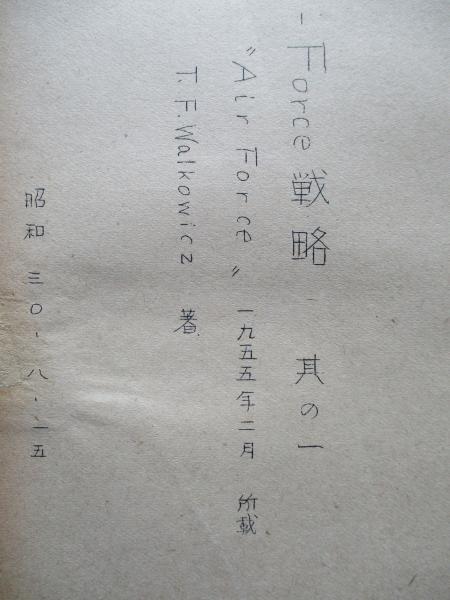 -Force戦略 其の一
"Air Force" 一九五五年二月 所載
T.F.Walkowicz 著
昭和 三〇-八-一五